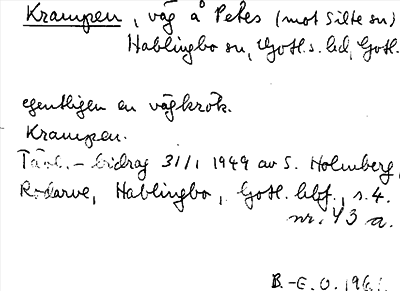 Krampen, väg å Petes (mot Silte sn)
Hablingbo sn, Gotl. s. hd, Gotl.
egentligen en vägkrök.
Krampen.
Tävl.-bidrag 31/1 1949 av S. Holmberg,
Rodarve, Hablingbo, Gotl. lbf., s. 4.
nr. 43 a.
B.-E. O. 1961.